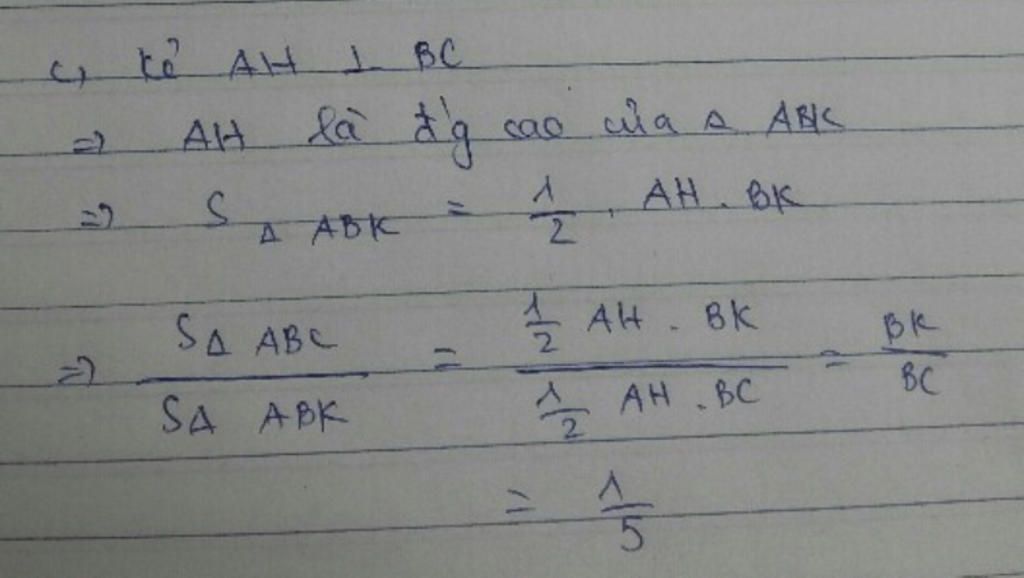 c, kẻ AH ⊥ BC
=> AH là đ'g cao của Δ ABK
=> S Δ ABK = 1/2 . AH . BK
=> SΔ ABC / SΔ ABK = 1/2 AH . BK / 1/2 AH . BC = BK / BC
= 1/5